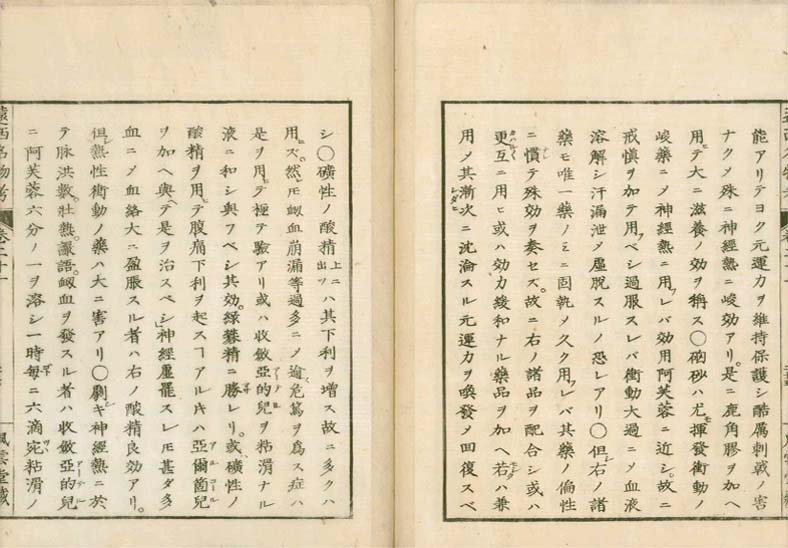 能アリテヨク元運力ヲ維持保護シ酷厲刺戟ノ害
ナクメ殊ニ神經熱ニ峻効アリ。是ニ鹿角膠ヲ加ヘ
用ヒテ大ニ滋養ノ効ヲ稱ス〇硇砂ハ尤モ揮發衝動ノ
峻藥ニメ神經熱ニ用フレバ効用阿芙蓉ニ近シ。故ニ
戒愼ヲ加テ用フベシ過服スレバ衝動大過ニメ血液
溶解シ汗漏泄メ虛脫スルノ恐レアリ〇但シ右ノ諸
藥モ唯一藥ノミニ固執メ久ク用フレバ其藥ノ偏性
ニ慣レテ殊効ヲ奏セズ。故ニ右ノ諸品ヲ配合シ或ハ
更互ニ用ヒ或ハ効力緩和ナル藥品ヲ加ヘ若クハ兼
用メ其漸次ニ沈淪スル元運力ヲ喚發メ回復スベ
シ〇礦性ノ酸精上ニ出ヅハ其下利ヲ增ス故ニ多クハ
用ヒズ。然レモ衂血崩漏等過多ニメ危篤ヲ爲ス症ハ
是ヲ用ヒテ極テ驗アリ或ハ收斂亞的兒ヲ粘滑ナル
液ニ和シ與フベシ其効。綠礬精ニ勝レリ。或ハ礦性ノ
酸精ヲ用ヒテ腹痛下利ヲ起スヿアルキハ亞爾箇兒
ヲ加ヘ與ヘテ是ヲ治スベシ」神經虛罷スレモ甚ダ多
血ニメ血絡大ニ盈脹スル者ハ右ノ酸精良効アリ。
但シ熱性衝動ノ藥ハ大ニ害アリ〇劇キ神經熱ニ於
テ脉洪數。壯熱。譫語。衂血ヲ發スル者ハ收斂亞的兒
ニ阿芙蓉六分ノ一ヲ溶シ一時每ニ六滴宛粘滑ノ
遠西名物考
卷二十一
風雲堂藏